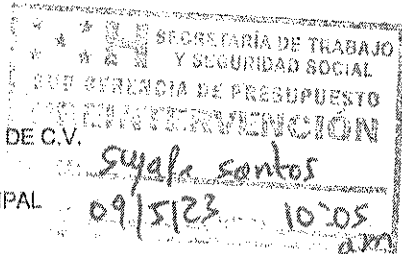 SECRETARÍA DE TRABAJO
Y SEGURIDAD SOCIAL
SUB GERENCIA DE PRESUPUESTO
PREINTERVENCIÓN
DE C.V.
santos
IPAL
09/5/23 10:05
am